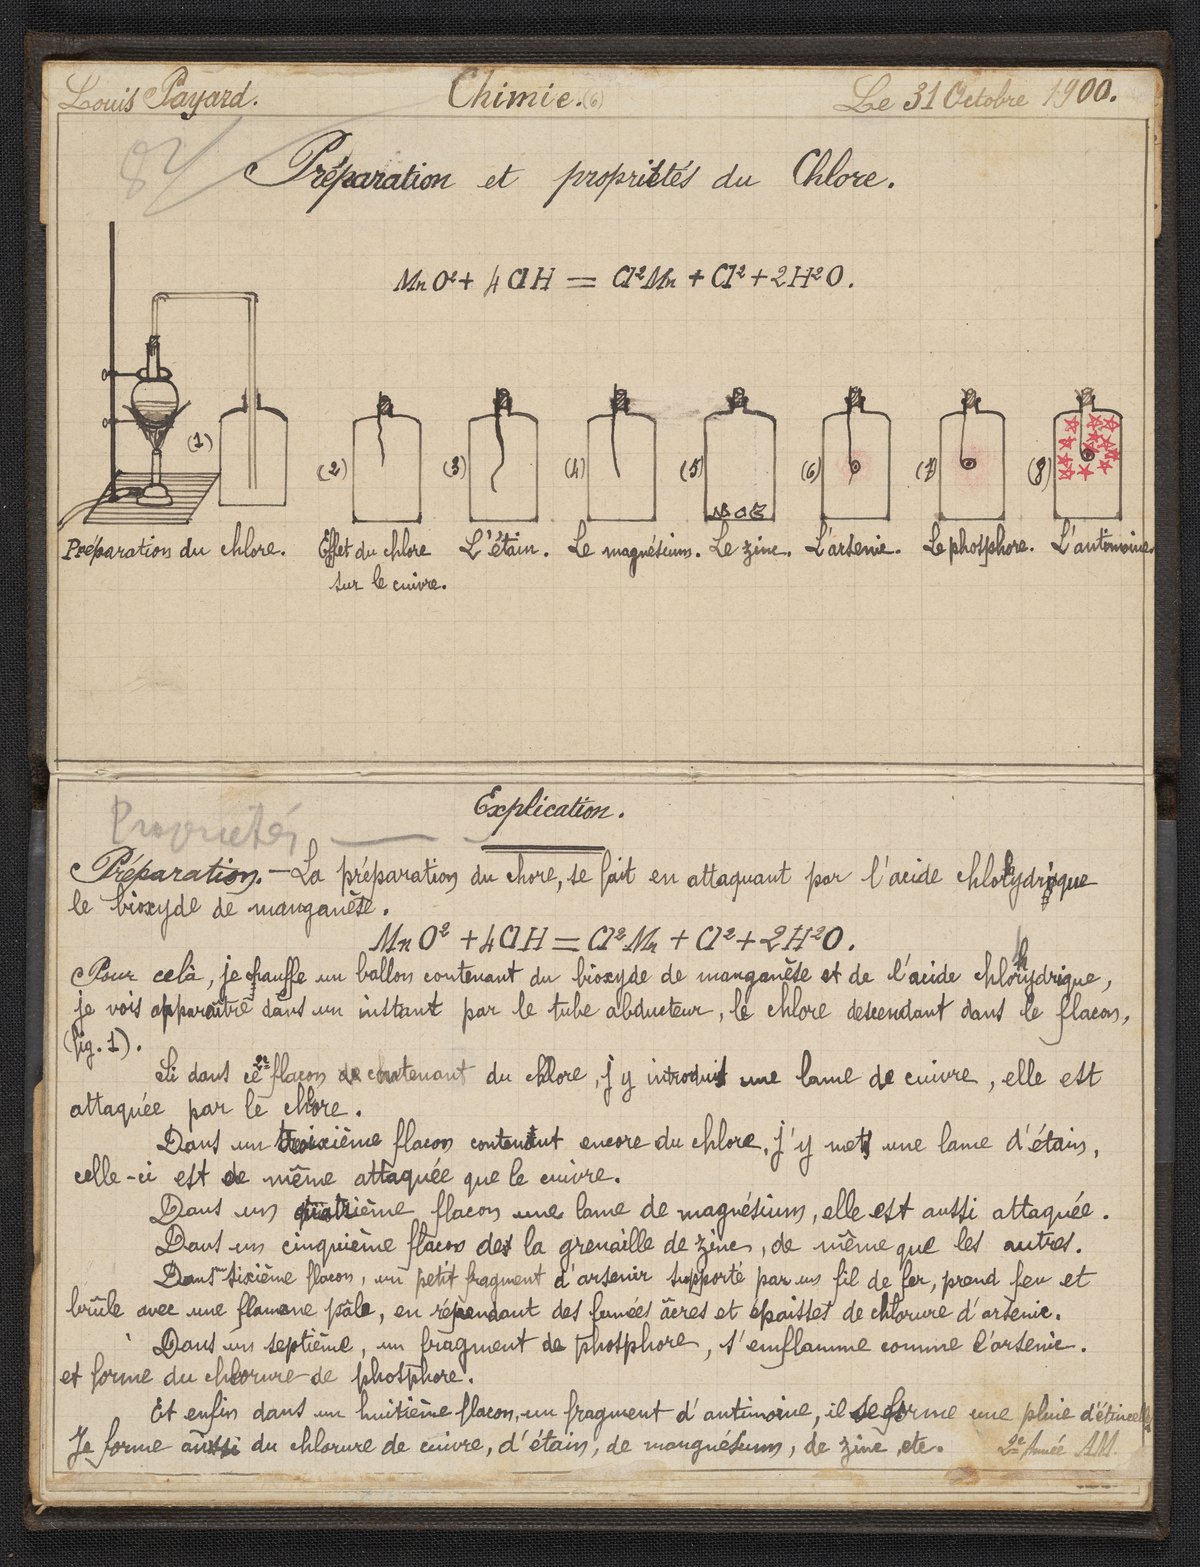 Louis Payard. Chimie. (6) Le 31 Octobre 1900.
Préparation et propriétés du Chlore.
MnO² + 4ClH = Cl²Mn + Cl² + 2H²O.
(1) (2) (3) (4) (5) (6) (7) (8)
Préparation du chlore. Effet du chlore L'étain. Le magnésium. Le zinc. L'arsenic. Le phosphore. L'antimoine.
sur le cuivre.
Explication.
Propriétés
Préparation. — La préparation du chore, se fait en attaquant par l'acide chlorhydrique
le bioxyde de manganèse.
MnO² + 4ClH = Cl²Mn + Cl² + 2H²O.
Pour celà, je chauffe un ballon contenant du bioxyde de manganèse et de l'acide chlorhydrique,
je vois apparaître dans un instant par le tube abducteur, le chlore descendant dans le flacon,
(fig. 1).
Si dans ce 2e flacon contenant du chlore, j'y introduis une lame de cuivre, elle est
attaquée par le chlore.
Dans un troisième flacon contenant encore du chlore, j'y mets une lame d'étain,
celle-ci est de même attaquée que le cuivre.
Dans un quatrième flacon une lame de magnésium, elle est aussi attaquée.
Dans un cinquième flacon de la grenaille de zinc, de même que les autres.
Dans sixième flacon, un petit fragment d'arsenic supporté par un fil de fer, prend feu et
brûle avec une flamme pâle, en répendant des fumées âcres et épaisses de chlorure d'arsenic.
Dans un septième, un fragment de phosphore, s'enflamme comme l'arsenic.
et forme du chlorure de phosphore.
Et enfin dans un huitième flacon, un fragment d'antimoine, il se forme une pluie d'étincelles
Je forme aussi du chlorure de cuivre, d'étain, de mangnésium, de zinc, etc. 2e Année